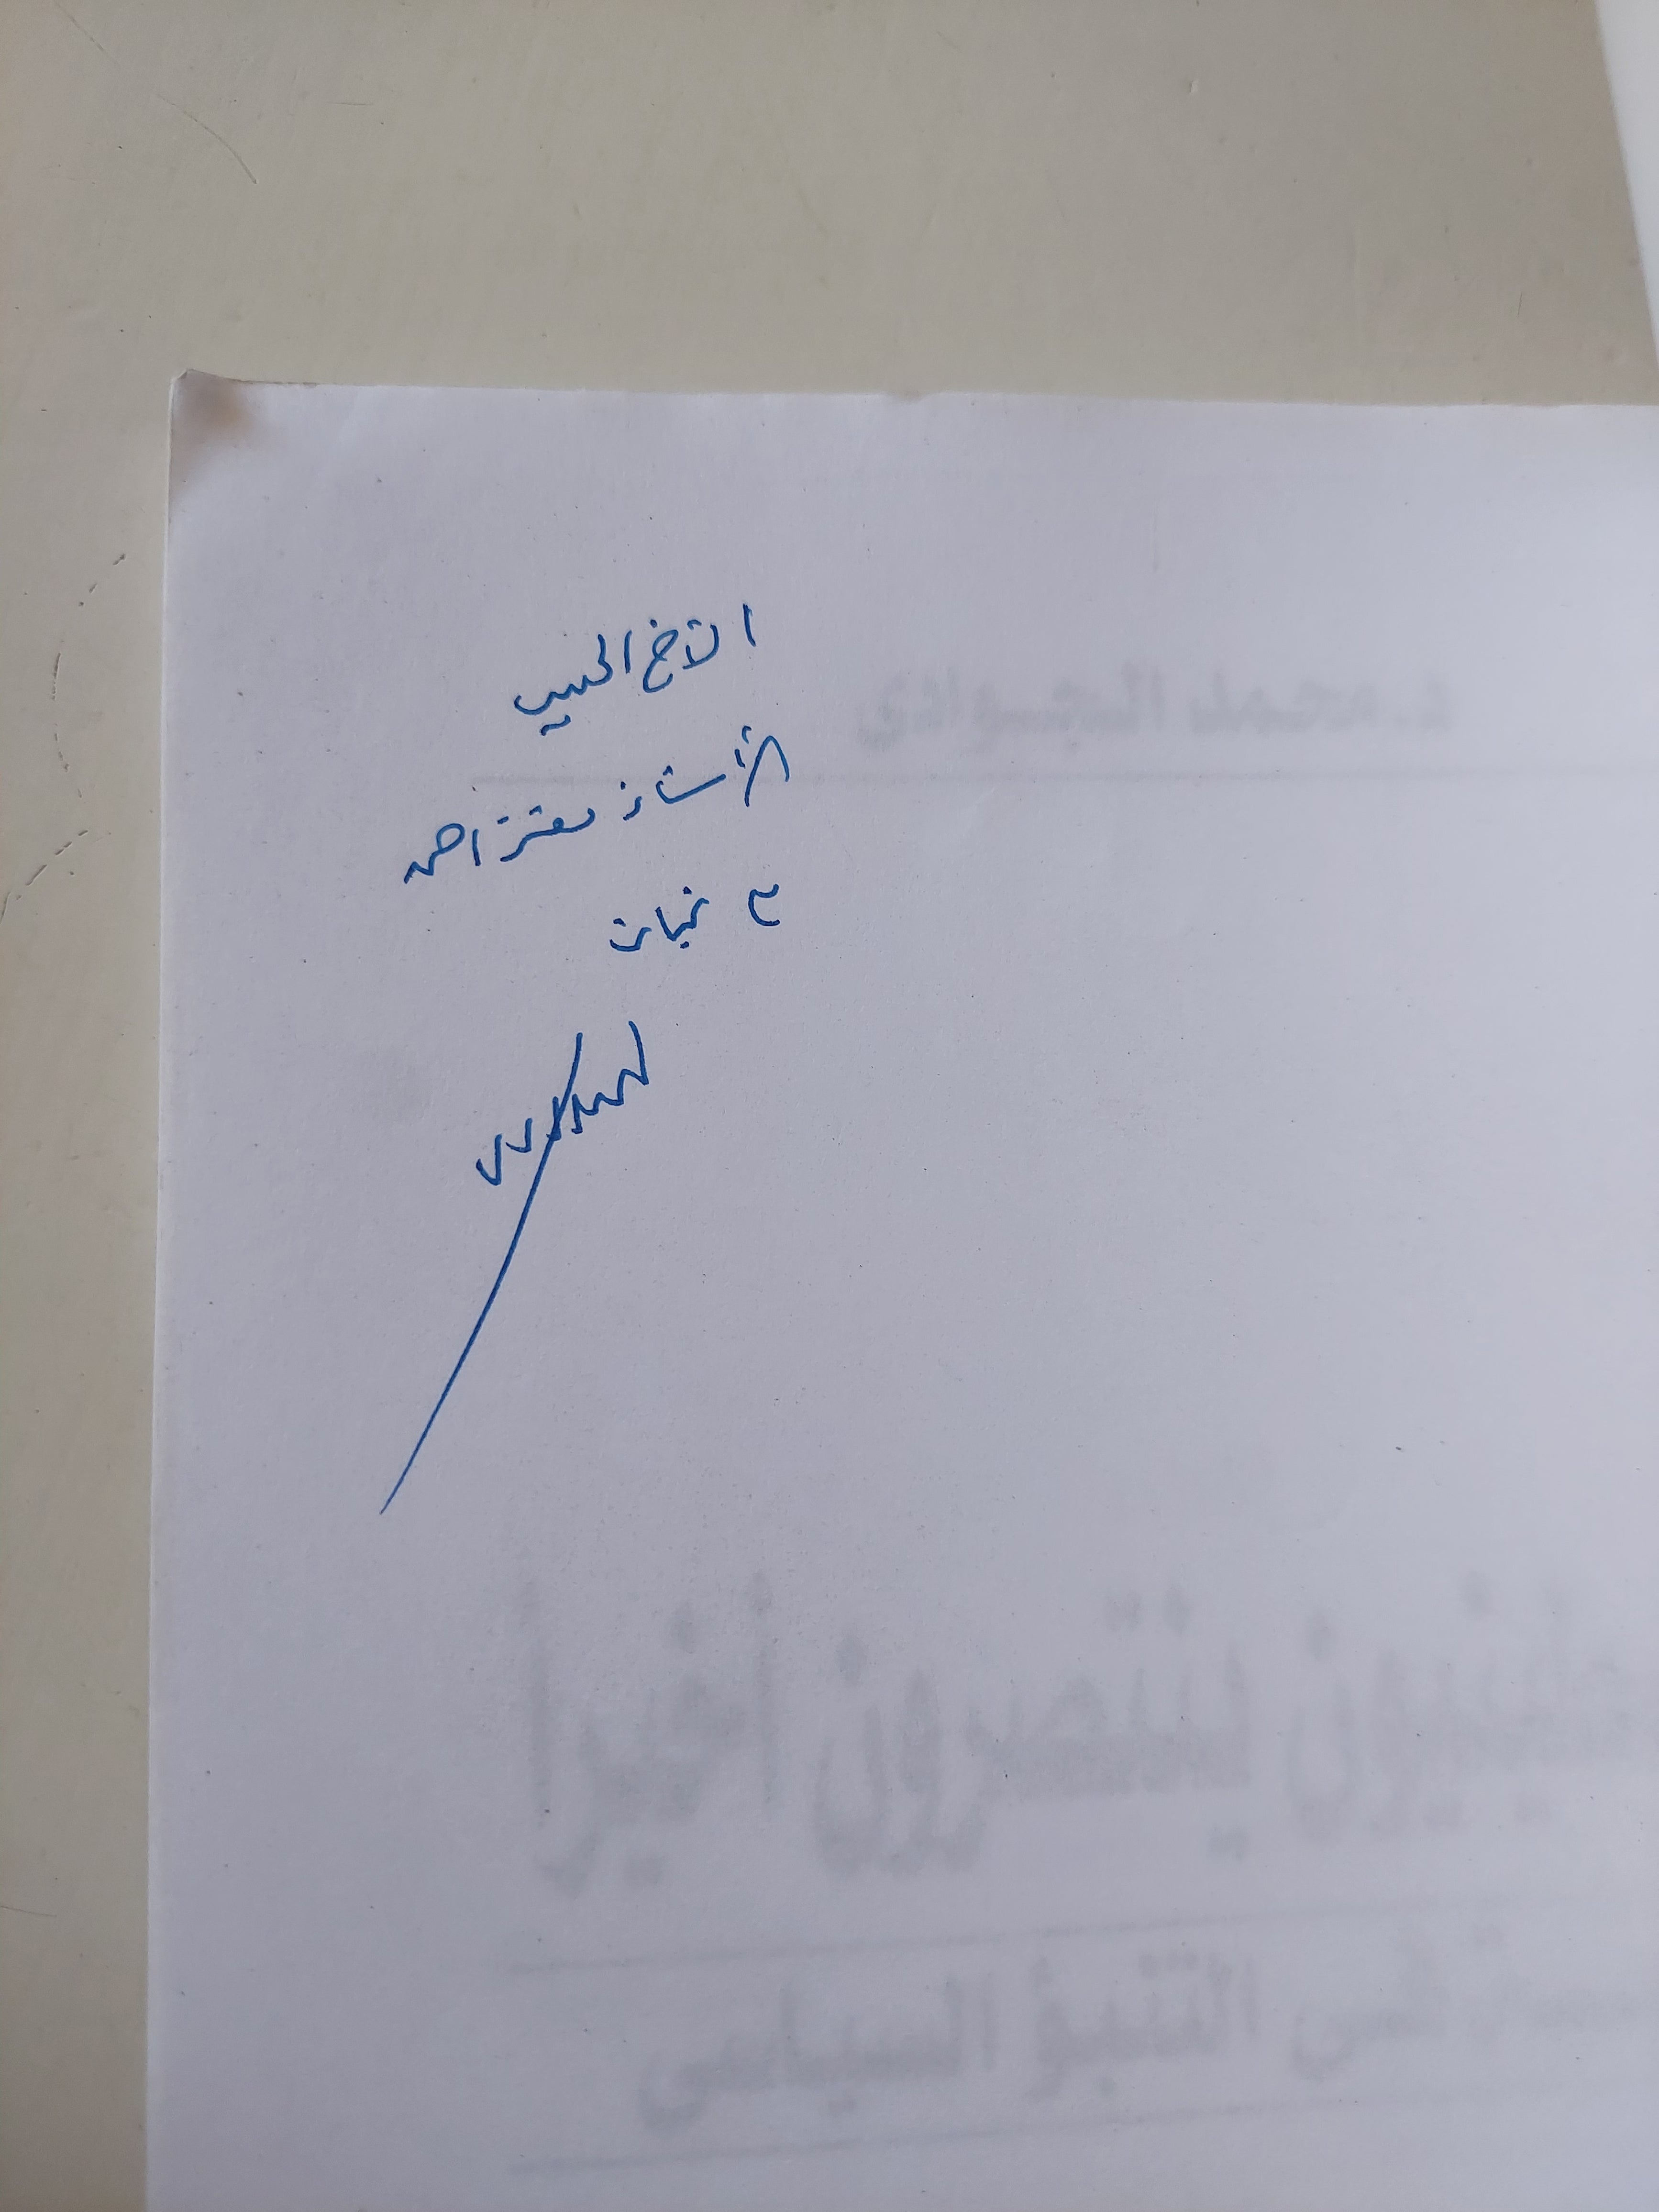 الأخ الحبيب
الأستاذ معتز احمد
مع تحيات
د. محمد الجوادي
ينتصرون أخيرا
في التنبؤ السياسي